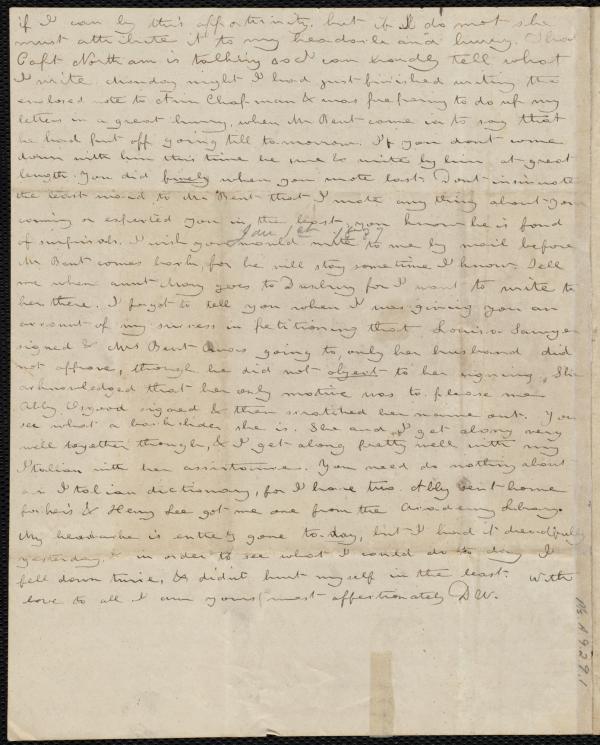 if I can by this opportunity, but if I do not she
must attribute it to my headache and hurry. I had
Capt Northam is talking so I can hardly tell what
I write. Monday night I had just finished writing the
enclosed note to Ann Chapman & was preparing to do up my
letters in a great hurry, when Mr Bent came in to say that
he had put off going till to-morrow. If you dont come
down with him this time be sure & write by him at great
length. You did finely when you wrote last. Dont insinuate
the least word to Mr Bent that I wrote any thing about you
coming or expected you in the least, you know he is fond
of surprisals. I wish you would write to me by mail before
Jan 1st 1837
Mr Bent comes back, for he will stay sometime I know. Tell
me when aunt Mary goes to Duxbury for I want to write to
her there. I forgot to tell you when I was giving you an
account of my success in petitioning that Louisa Sawyer
signed & Mrs Bent was going to, only her husband did
not approve, though he did not object to her signing. She
acknowledged that her only motive was to please me.
Abby Osgood signed & then scratched her name out. You
see what a backslider she is. She and I get along very
well together though, & I get along pretty well with my
Italian with her assistance. You need do nothing about
an Italian dictionary, for I have two. Abby sent home
for hers & Henry Lee got me one from the Academy Library.
My headache is entirely gone to-day, but I had it dreadfully
yesterday, & in order to see what I could do to day I
fell down twice, & didn't hurt myself in the least. With
love to all I am yours most affectionately D W.
Ms. A. 9.2 9.1